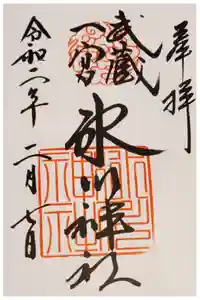 奉拝
武蔵
一宮
氷川神社
令和二年二月七日